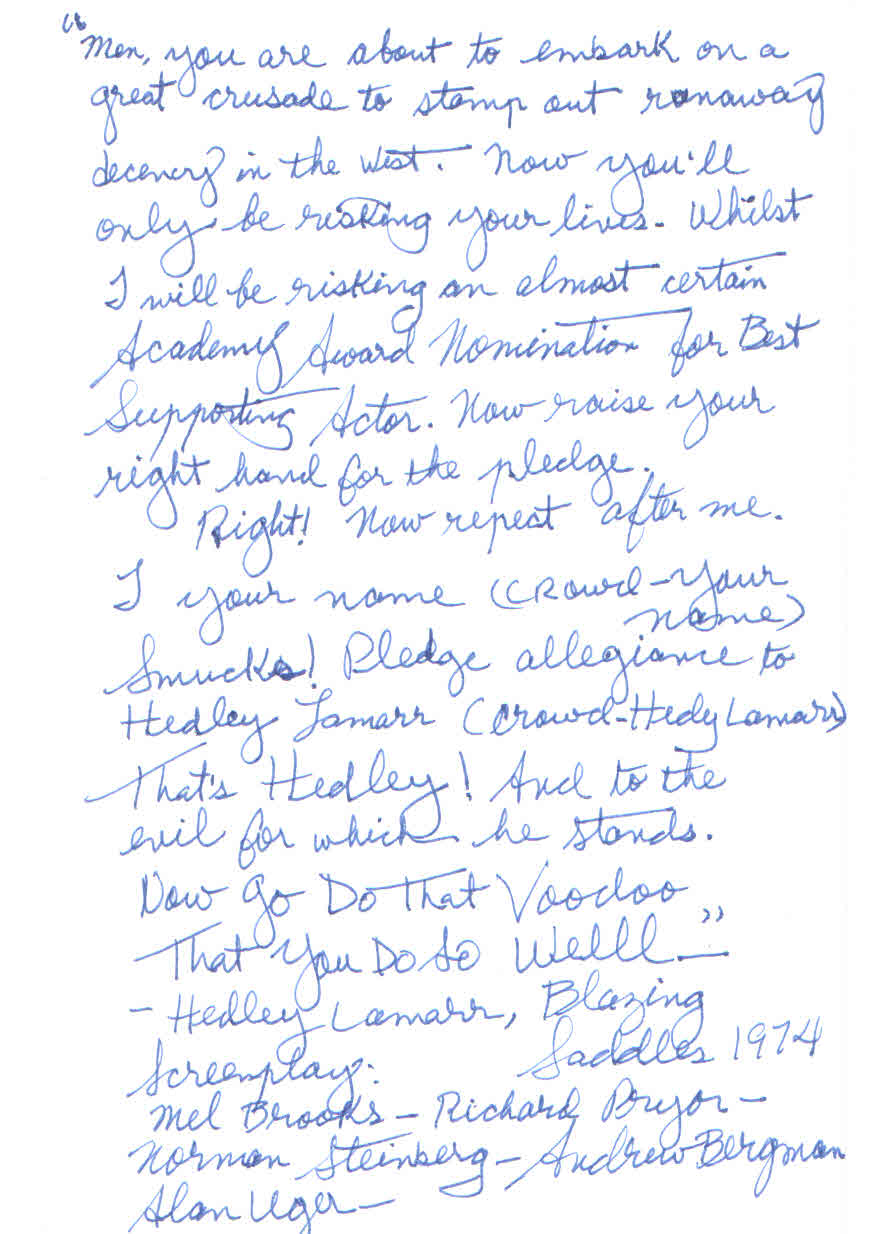 "Men, you are about to embark on a
great crusade to stamp out runaway
decency in the West. Now you'll
only be risking your lives. Whilst
I will be risking an almost certain
Academy Award Nomination for Best
Supporting Actor. Now raise your
right hand for the pledge.
Right! Now repeat after me.
I your name (Crowd-Your
name)
Smucks! Pledge allegiance to
Hedley Lamarr (Crowd-Hedy Lamarr)
That's Hedley! And to the
evil for which he stands.
Now Go Do That Voodoo
That You Do So Welll—"
- Hedley Lamarr, Blazing
Saddles 1974
Screenplay:
Mel Brooks - Richard Pryor -
Norman Steinberg - Andrew Bergman
Alan Uger -